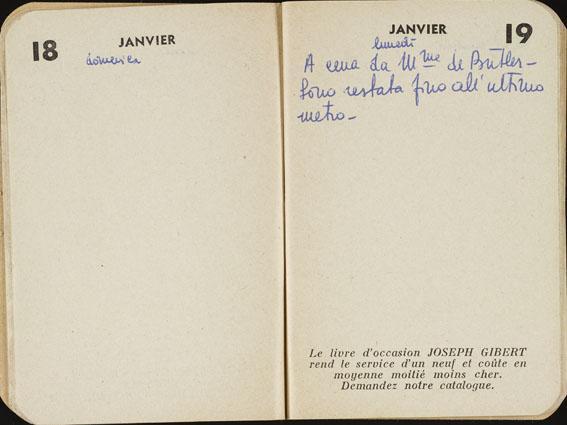 18
JANVIER
domenica
JANVIER
19
lunedì
A cena da Mme de Butler –
Sono restata fino all'ultimo
metro –
Le livre d'occasion JOSEPH GIBERT
rend le service d'un neuf et coûte en
moyenne moitié moins cher.
Demandez notre catalogue.